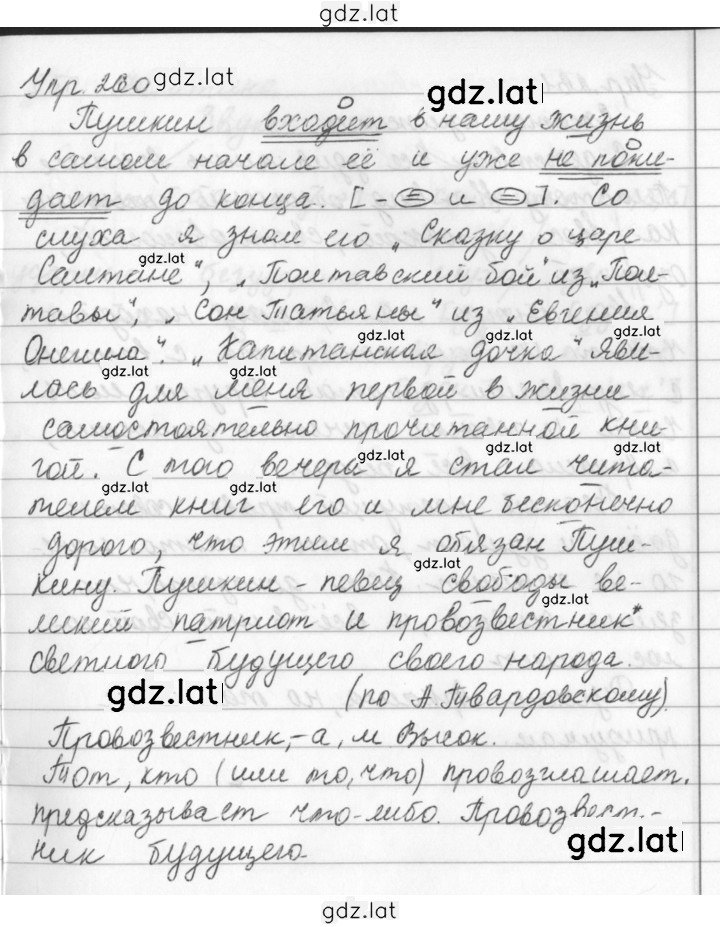 gdz.lat
Упр. 260 gdz.lat
gdz.lat
Пушкин входит в нашу жизнь
в самом начале её и уже не поки-
дает до конца. [- и ]. Со
слуха я знаю его „Сказку о царе
gdz.lat
Салтане", „Полтавский бой" из „Пол-
тавы", „Сон Татьяны" из „Евгения
gdz.lat gdz.lat
Онегина". „Капитанская дочка" яви-
gdz.lat gdz.lat gdz.lat
лась для меня первой в жизни
самостоятельно прочитанной кни-
gdz.lat
гой. С того вечера я стал чита-
gdz.lat gdz.lat
телем книг его и мне бесконечно
дорого, что этим я обязан Пуш-
gdz.lat
кину. Пушкин - певец свободы ве-
gdz.lat
ликий патриот и провозвестник*
светлого будущего своего народа.
gdz.lat gdz.lat
(по А. Твардовскому).
Провозвестник, -а, м Высок.
Тот, кто (или то, что) провозглашает,
предсказывает что-либо. Провозвест-
gdz.lat
ник будущего.
gdz.lat